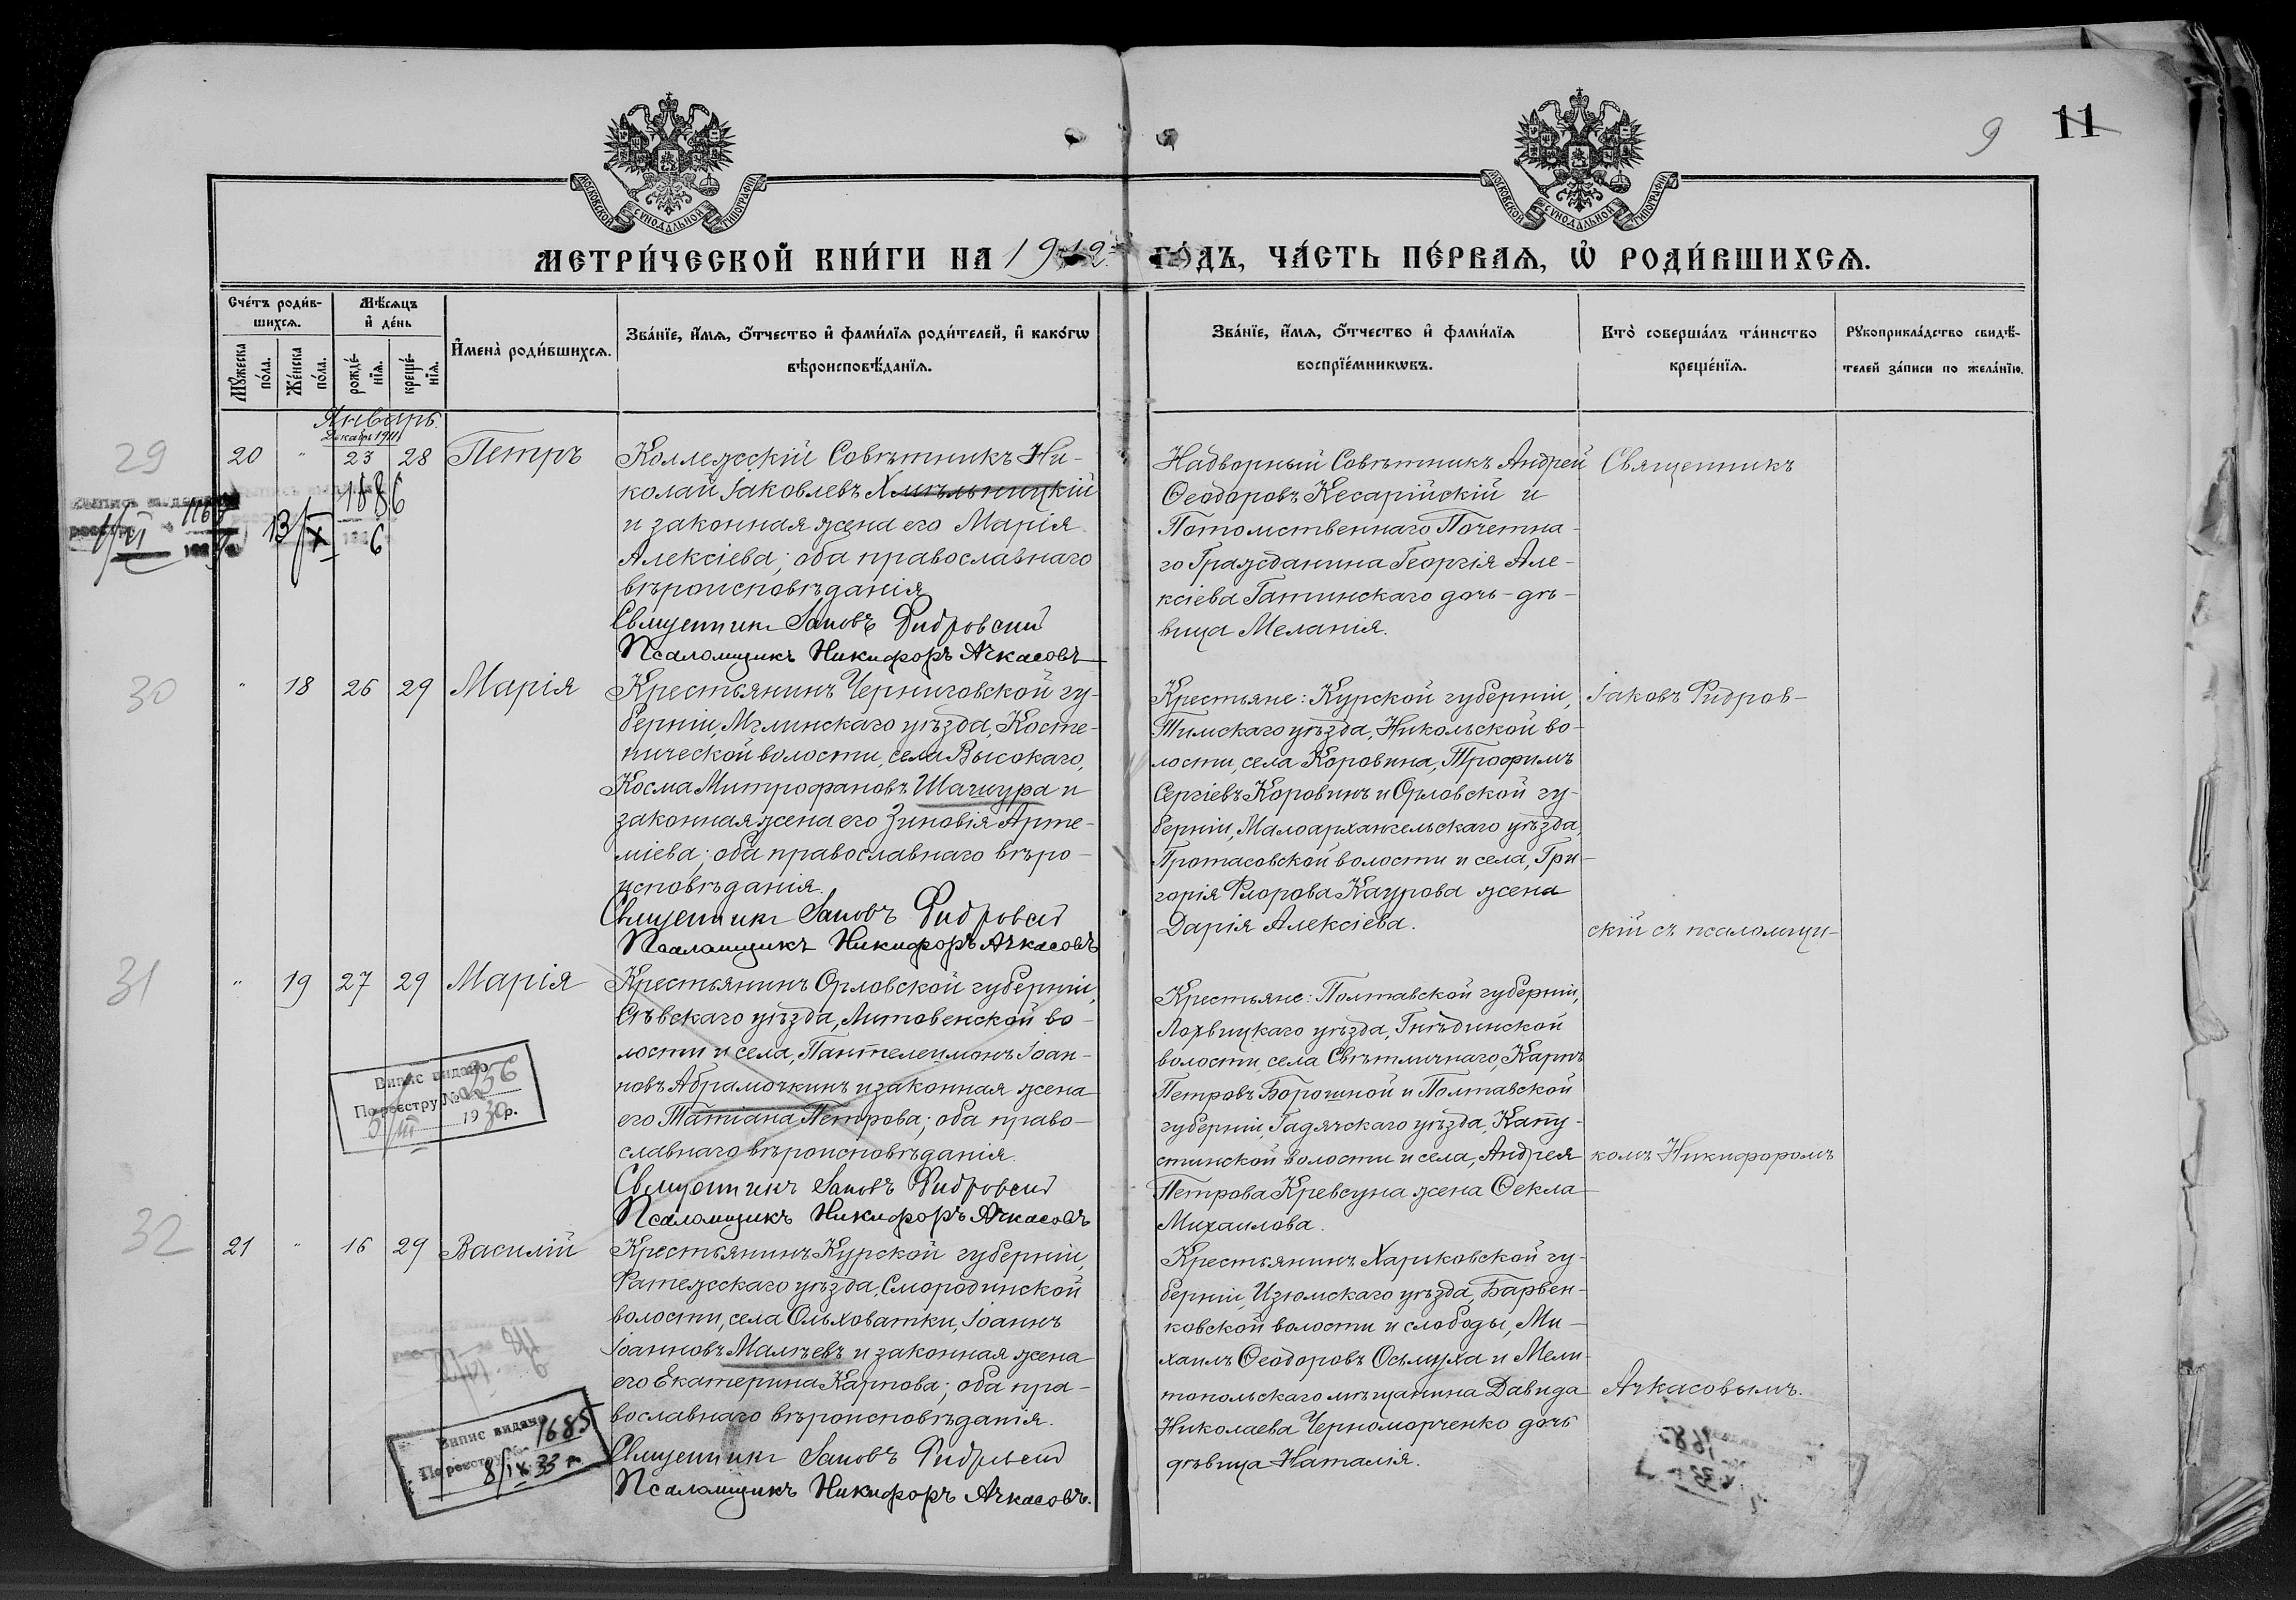 9 11
МОСКОВСКОЙ СУНОДАЛЬНОЙ ТИПОГРАФІИ
МОСКОВСКОЙ СУНОДАЛЬНОЙ ТИПОГРАФІИ
МЕТРИ́ЧЕСКОЙ КНИ́ГИ НА 1912 ГО́ДЪ, ЧА́СТЬ ПЕ́РВАЯ, Ѡ РОДИ́ВШИХСЯ.
Сче́тъ роди́в-
шихся.
Мꙋжеска по́ла.
Же́нска по́ла.
Мѣ́сяцъ
и҆ де́нь
рожде́-
нїя.
креще́-
нїя.
И҆мена̀ роди́вшихся.
Зва́нїе, и҆́мя, ѻ҆́тчество и҆ фами́лїя роди́телей, и҆ како́гѡ
вѣроисповѣ́данїя.
Зва́нїе, и҆́мя, ѻ҆́тчество и҆ фами́лїя
воспрїе́мникѡвъ.
Кто̀ соверша́лъ та́инство
креще́нїя.
Рꙋкоприкла́дство свидѣ́-
телей за́писи по жела́нїю.
Январь.
Декабрь 1911
29
20 " 23 28 Петръ
Коллежскій Совѣтникъ Ни-
колай Іаковлевъ Хмѣльницкій
и законная жена его Марія
Алексіева; оба православнаго
вѣроисповѣданія
Священникъ Іаковъ Ридровскій
Псаломщикъ Никифоръ Ачкасовъ
Надворный Совѣтникъ Андрей
Ѳеодоровъ Кесарійскій и
Потомственнаго Почетна-
го Гражданина Георгія Але-
ксіева Гатинскаго дочь-дѣ-
вица Меланія.
Священникъ
1886
13/X
6
30
" 18 26 29 Марія
Крестьянинъ Черниговской гу-
берніи, Мглинскаго уѣзда, Косте-
нической волости, села Высокаго,
Косма Митрофановъ Шагшура и
законная жена его Зиновія Арте-
міева; оба православнаго вѣро-
исповѣданія.
Священникъ Іаковъ Ридровскій
Псаломщикъ Никифоръ Ачкасовъ
Крестьяне: Курской губерніи,
Тимскаго уѣзда, Никольской во-
лости, села Коровина, Трофимъ
Сергіевъ Коровинъ и Орловской гу-
берніи, Малоархангельскаго уѣзда,
Протасовской волости и села, Гри-
горія Флорова Каурова жена
Дарія Алексіева.
Іаковъ Ридров-
скій съ псаломщи-
31
" 19 27 29 Марія
Крестьянинъ Орловской губерніи,
Сѣвскаго уѣзда, Литовенской во-
лости и села, Пантелеимонъ Іоан-
новъ Абрамочкинъ и законная жена
его Татіана Петрова; оба право-
славнаго вѣроисповѣданія.
Священникъ Іаковъ Ридровскій
Псаломщикъ Никифоръ Ачкасовъ
Крестьяне: Полтавской губерніи,
Лохвицкаго уѣзда, Гнѣдинской
волости, села Свѣтличнаго, Карпъ
Петровъ Борошной и Полтавской
губерніи, Гадячскаго уѣзда, Капу-
стинской волости и села, Андрея
Петрова Кревсуна жена Ѳекла
Михаилова.
комъ Никифоромъ
Випис видано
По реєстру №
III 1930р.
32
21 " 16 29 Василій
Крестьянинъ Курской губерніи,
Фатежскаго уѣзда, Смородинской
волости, села Ольховатки, Іоаннъ
Іоанновъ Малѣевъ и законная жена
его Екатерина Карпова; оба пра-
вославнаго вѣроисповѣданія.
Священникъ Іаковъ Ридровскій
Псаломщикъ Никифоръ Ачкасовъ.
Крестьянинъ Харьковской гу-
берніи, Изюмскаго уѣзда, Барвен-
ковской волости и слободы, Ми-
хаилъ Ѳеодоровъ Осьмуха и Мели-
топольскаго мѣщанина Давида
Николаева Черноморченко дочь
дѣвица Наталія.
Ачкасовымъ.
Випис видано
По реєстру № 1685
8/IX 33 р.